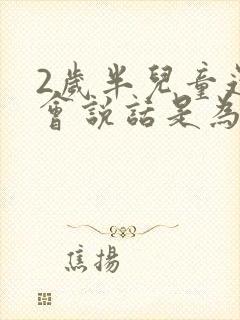 2歲半兒童
會說話是為
焦揚